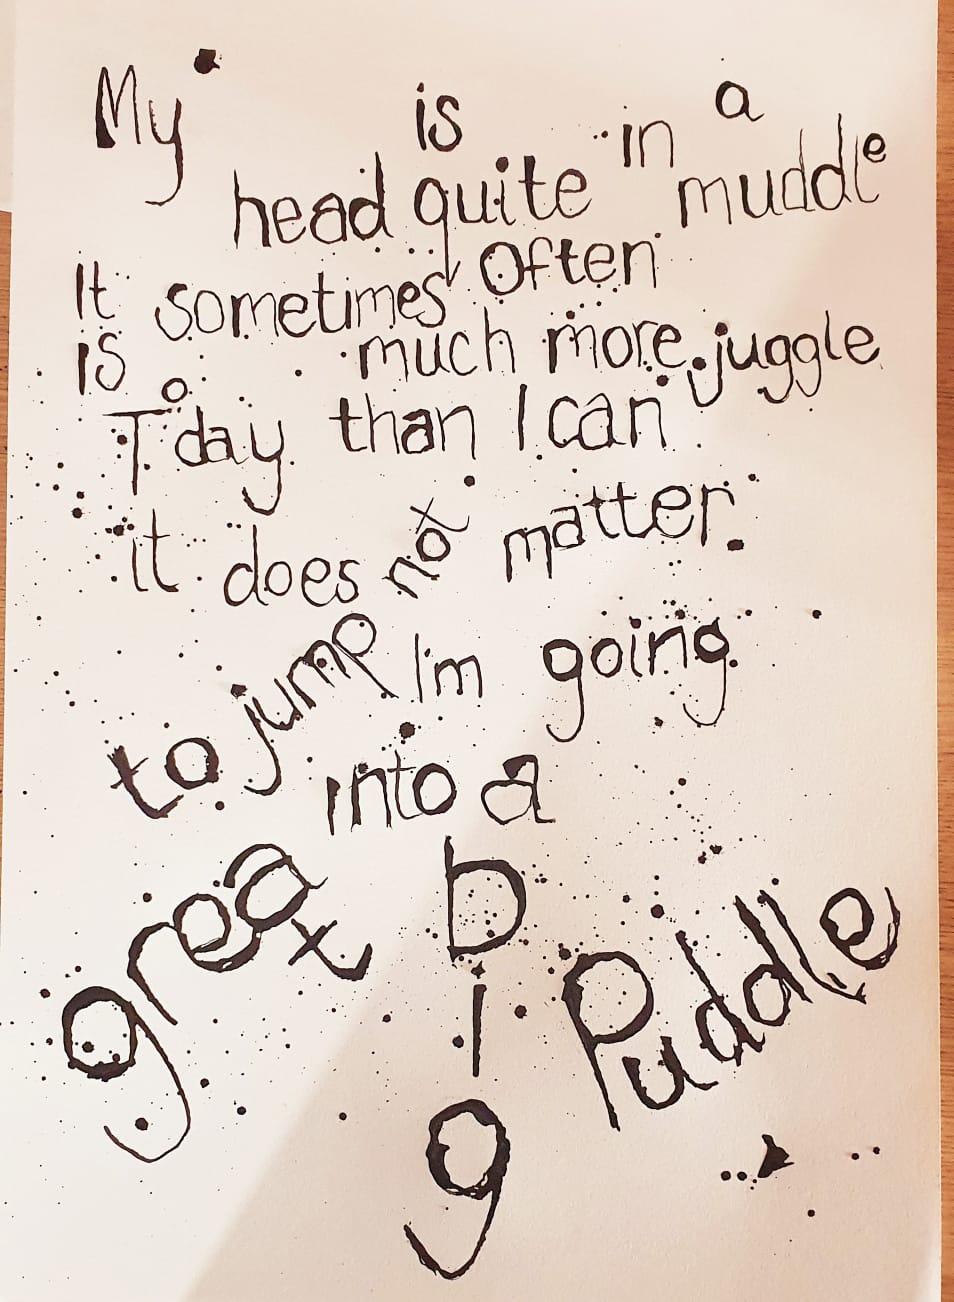 My head is quite in a muddle
It sometimes Often
is much more juggle
Today than I can
it does not matter.
to jump I'm going
into a
great big Puddle